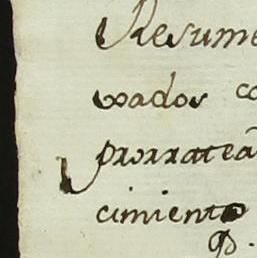 Resume
xados co
prorratea
cimiento